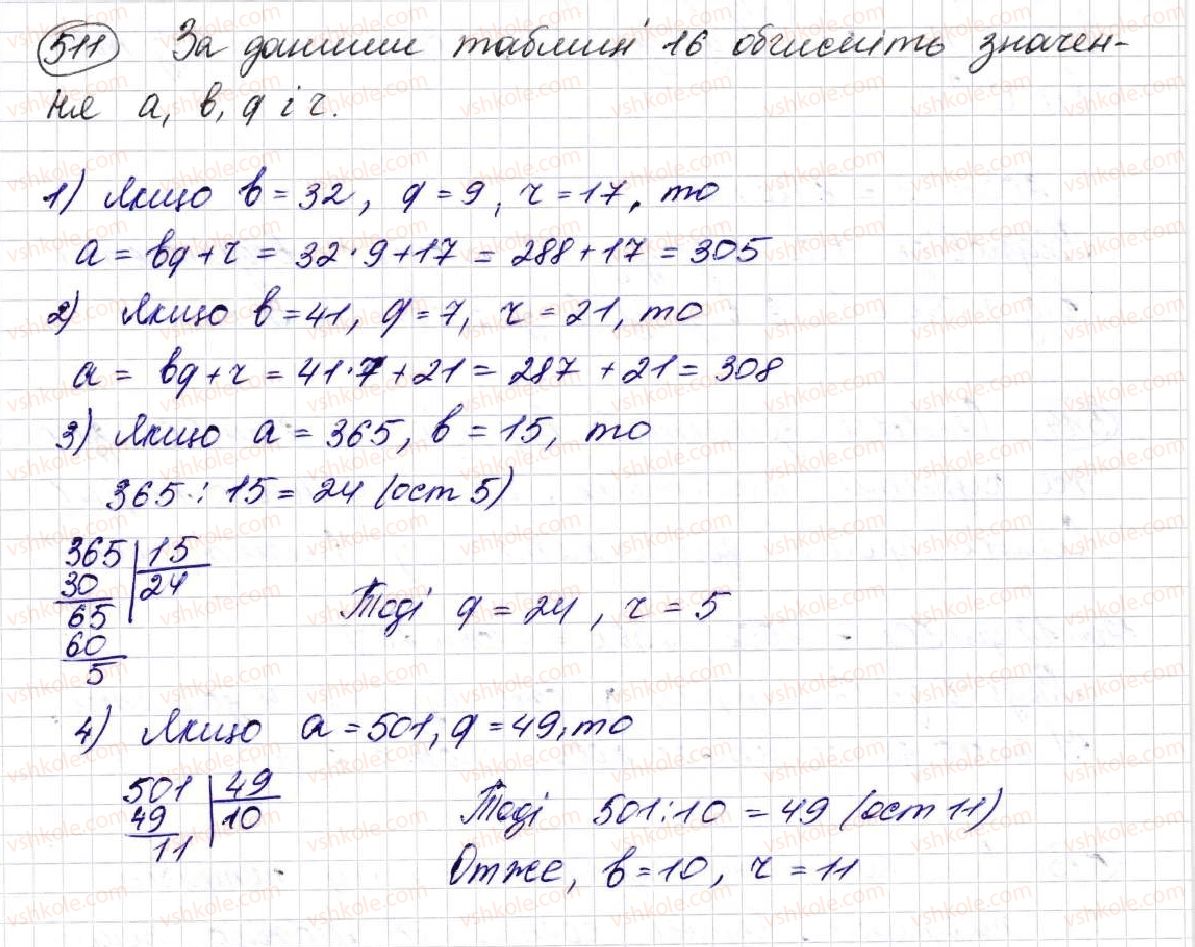 511 За даними таблиці 16 обчисліть значен-
ня a, b, q і r.
1) Якщо b = 32, q = 9, r = 17, то
a = bq + r = 32 · 9 + 17 = 288 + 17 = 305
2) Якщо b = 41, q = 7, r = 21, то
a = bq + r = 41 · 7 + 21 = 287 + 21 = 308
3) Якщо a = 365, b = 15, то
365 : 15 = 24 (ост 5)
365 | 15
30 | 24
65
60
5
Тоді q = 24, r = 5
4) Якщо a = 501, q = 49, то
501 | 49
49 | 10
11
Тоді 501 : 10 = 49 (ост 11)
Отже, b = 10, r = 11
vshkole.com